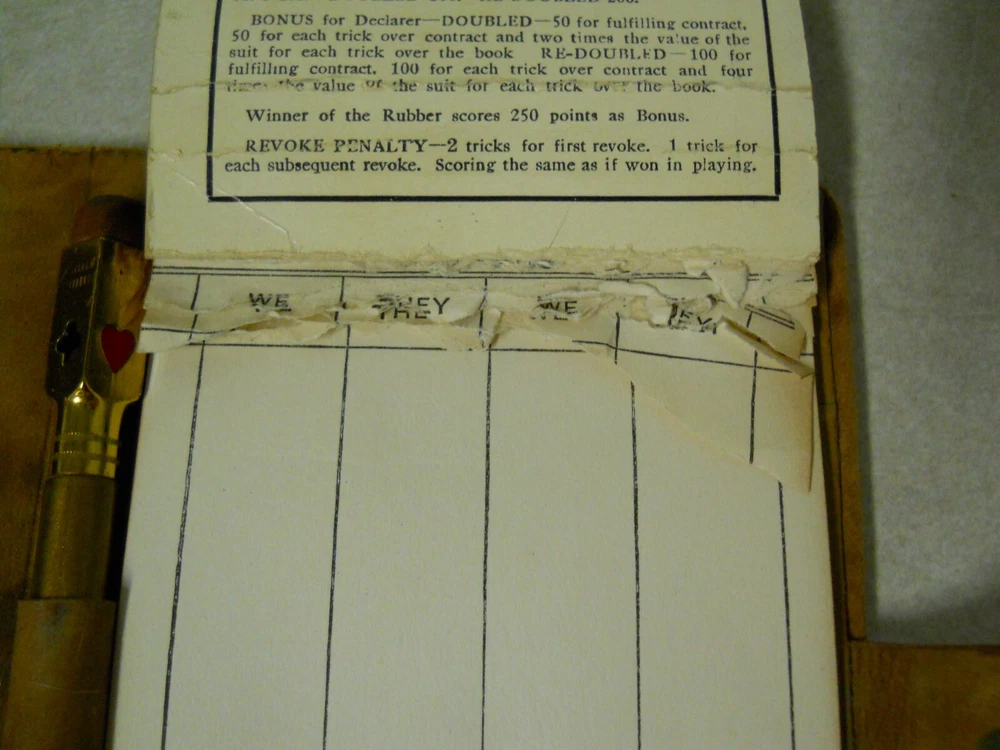 BONUS for Declarer—DOUBLED—50 for fulfilling contract,
50 for each trick over contract and two times the value of the
suit for each trick over the book RE-DOUBLED—100 for
fulfilling contract, 100 for each trick over contract and four
times the value of the suit for each trick over the book.
Winner of the Rubber scores 250 points as Bonus.
REVOKE PENALTY—2 tricks for first revoke. 1 trick for
each subsequent revoke. Scoring the same as if won in playing.
WE THEY WE